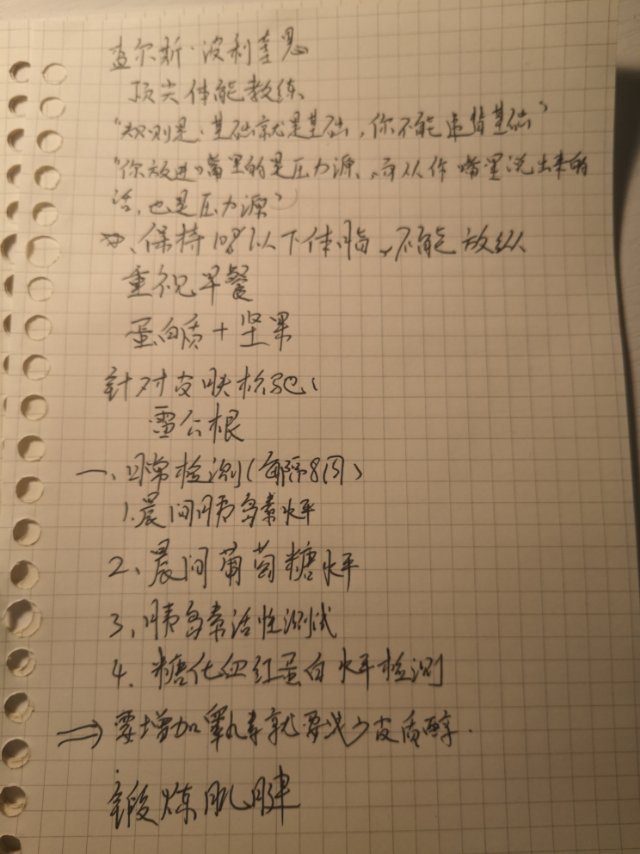 查尔斯·波利奎恩
顶尖体能教练
“规则是:基础就是基础,你不能违背基础”
“你放进嘴里的是压力源,而从你嘴里说出来的
话,也是压力源”
保持10%以下体脂,不能放纵
重视早餐
蛋白质+坚果
针对皮肤松弛:
雷公根
一、日常检测(每隔8周)
1.晨间胰岛素水平
2、晨间葡萄糖水平
3、胰岛素活性测试
4.糖化血红蛋白水平检测
⇒要增加睾酮就要减少皮质醇.
锻炼肌腱